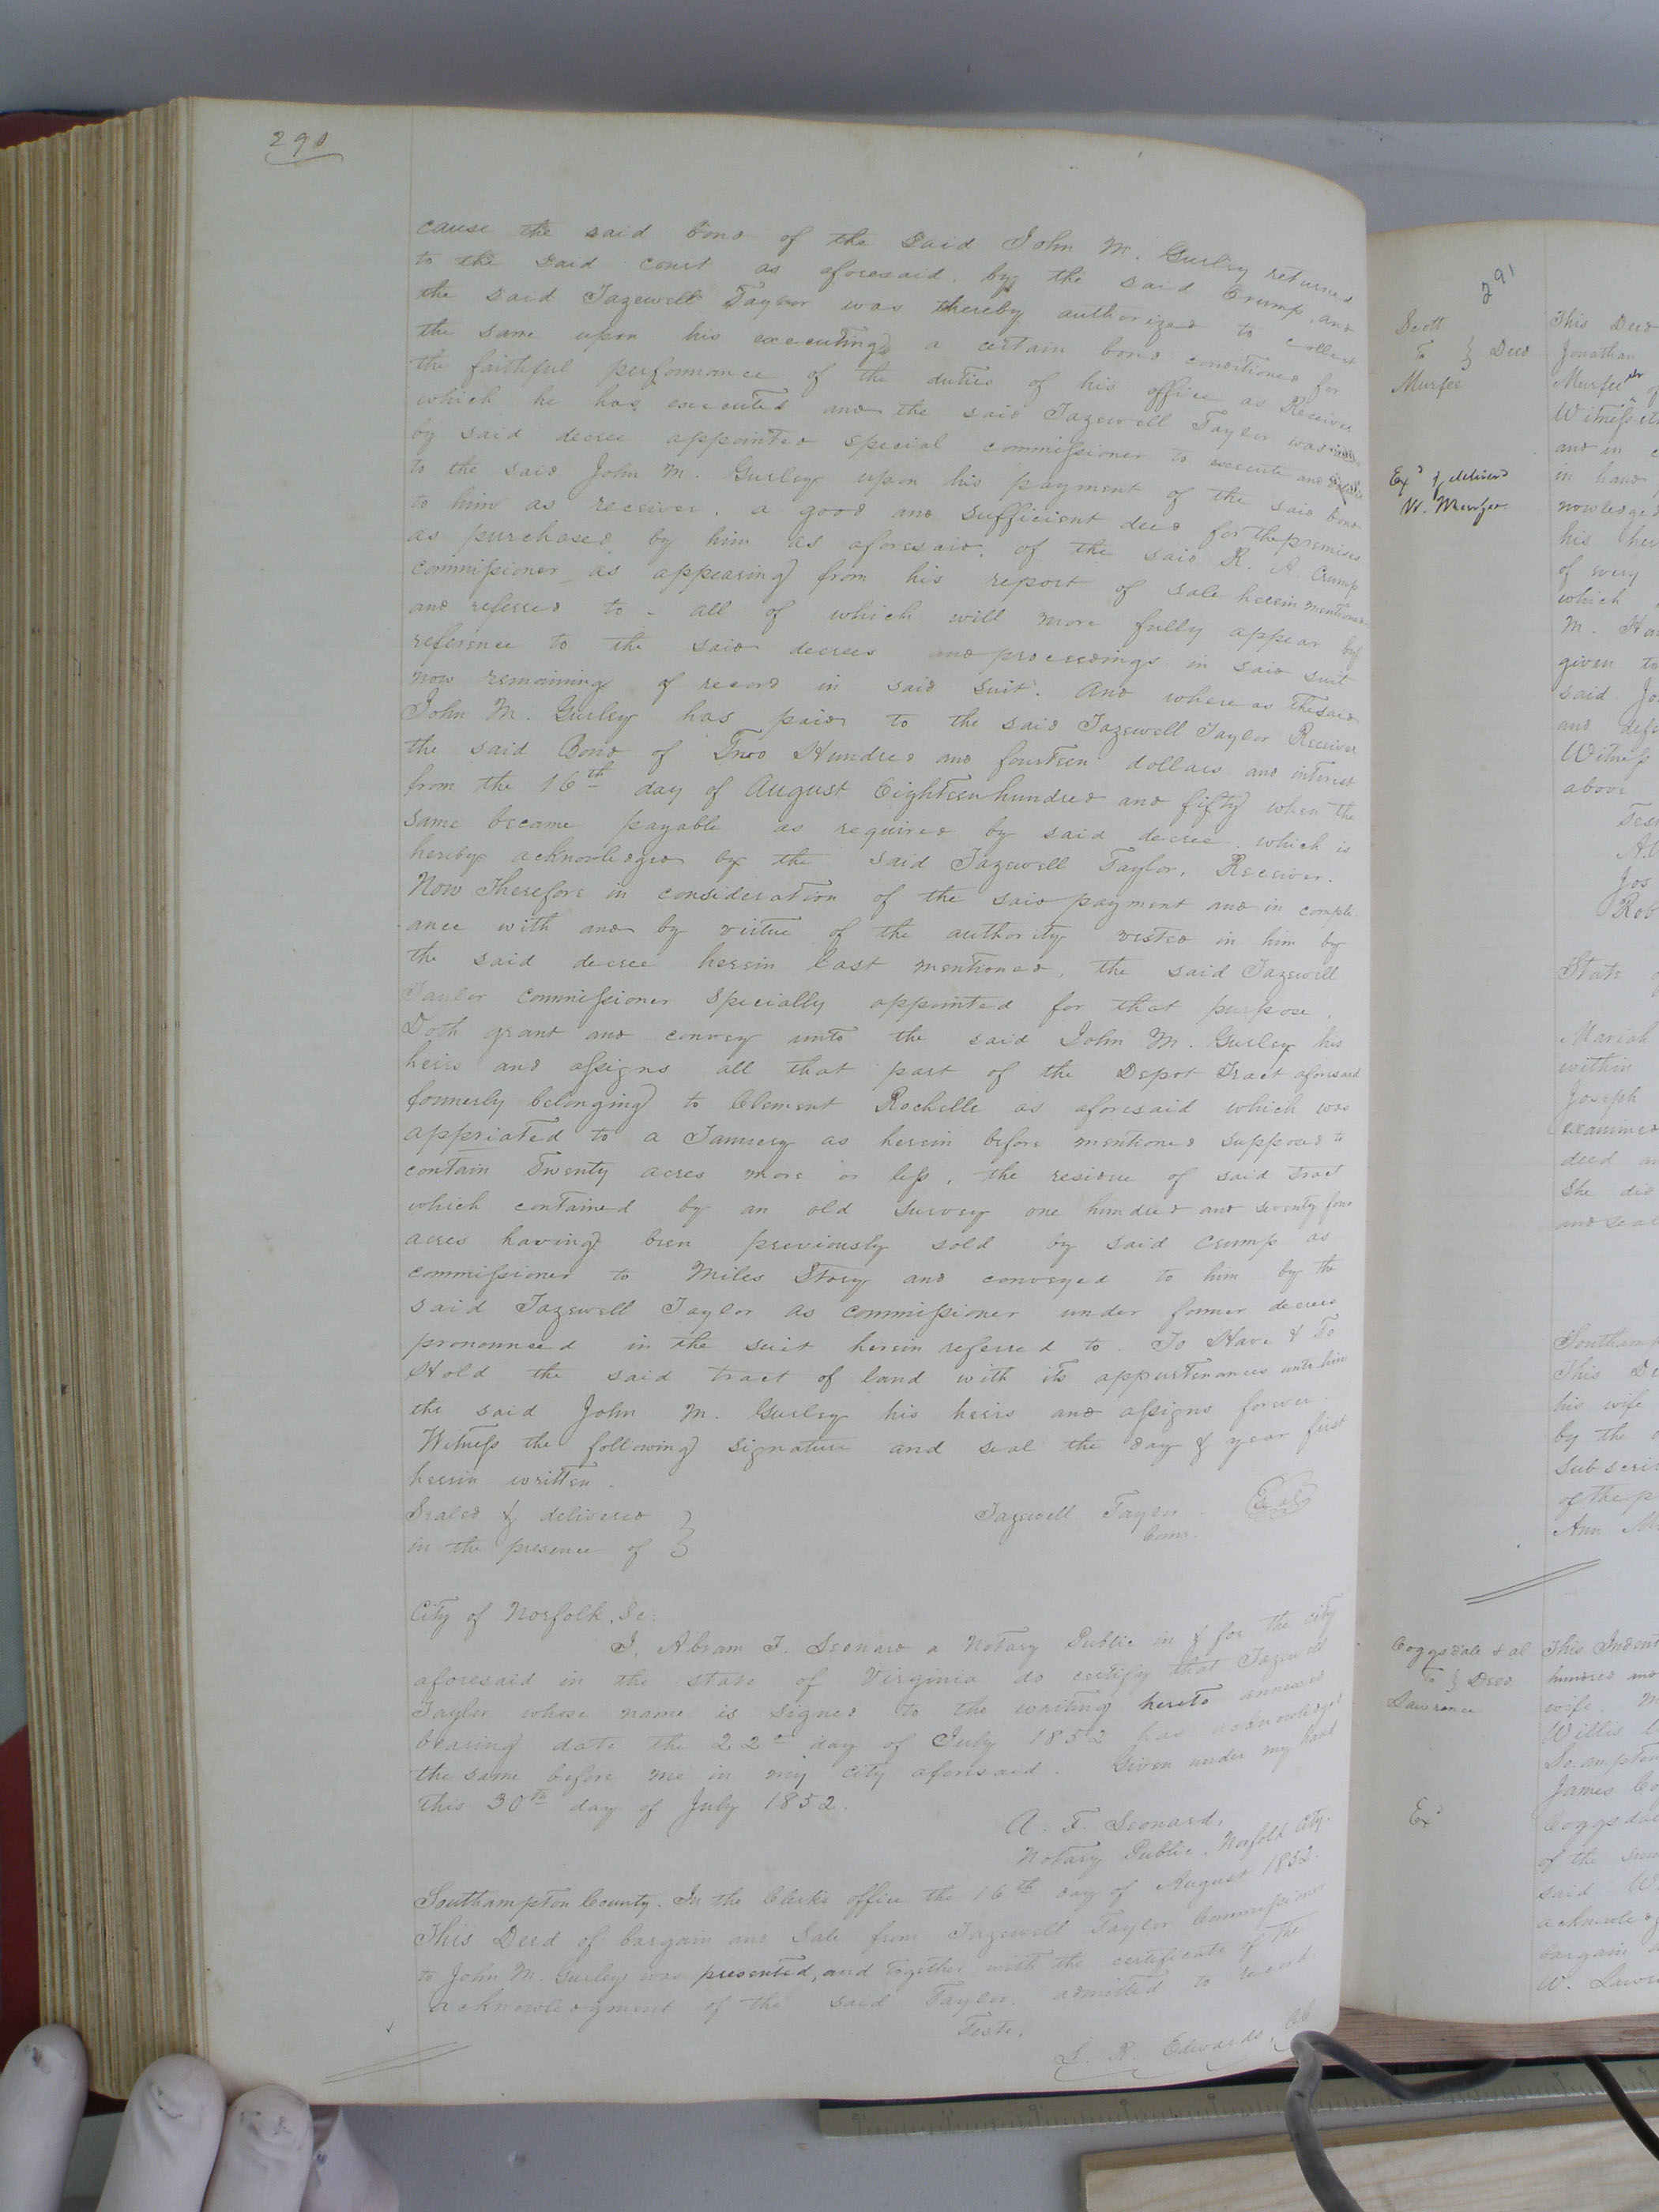 290
cause the said bond of the said John M. Gurley returned
to the said court as aforesaid, by the said Crump, and
the said Tazewell Taylor was thereby authorized to collect
the same upon his executing a certain bond conditioned for
the faithful performance of the duties of his office as Receiver
which he has executed and the said Tazewell Taylor was
by said decree appointed special commissioner to execute and
to the said John M. Gurley upon his payment of the said bond
to him as receiver, a good and sufficient deed for the premises
as purchased by him as aforesaid, of the said R. A Crump
commissioner as appearing from his report of sale herein mentioned
and referred to - all of which will more fully appear by
reference to the said decrees and proceedings in said suit
now remaining of record in said suit. And where as the said
John M. Gurley has paid to the said Tazewell Taylor Receiver
the said Bond of Two Hundred and fourteen dollars and interest
from the 16th day of August Eighteen hundred and fifty when the
same became payable as required by said decree, which is
hereby acknowledged by the said Tazewell Taylor, Receiver.
Now Therefore in consideration of the said payment and in compli
ance with and by virtue of the authority vested in him by
the said decree herein last mentioned, the said Tazewell
Taylor commissioner specially appointed for that purpose,
Doth grant and convey unto the said John M. Gurley his
heirs and assigns all that part of the Depot Tract aforesaid
formerly belonging to Clement Rochelle as aforesaid which was
appriated to a Tannery as herein before mentioned supposed to
contain Twenty acres more or less, the residue of said tract
which contained by an old survey one hundred and seventy four
acres having been previously sold by said Crump as
commissioner to Miles Story and conveyed to him by the
said Tazewell Taylor as commissioner under former decrees
pronounced in the suit herein referred to. To Have & To
Hold the said tract of land with its appurtenances unto him
the said John M. Gurley his heirs and assigns forever
Witness the following signature and seal the day & year first
herein written.
Sealed & delivered
in the presence of }
Tazewell Taylor Seal
Comr.
City of Norfolk, Sc:
I, Abram F. Leonard a Notary Public in & for the city
aforesaid in the state of Virginia do certify that Tazewell
Taylor whose name is signed to the writing hereto annexed
bearing date the 22d day of July 1852 has acknowledged
the same before me in my city aforesaid. Given under my hand
this 30th day of July 1852.
A. F. Leonard,
Notary Public, Norfolk City.
Southampton County. In the Clerk's office the 16th day of August 1852.
This Deed of bargain and Sale from Tazewell Taylor Commissioner
to John M. Gurley was presented, and together with the certificate of the
acknowledgment of the said Taylor, admitted to record.
Teste,
L. R. Edwards, Clk
291
Scott
To } Deed
Murfee
Exd & delivered
W. Murfee
This Deed
Jonathan
Murfee
Witnesseth
and in
in hand
nowledged
his hei
of every
which
M.
given to
said Jo
and defe
Witness
above
Test
Jos
Rob
State
Mariah
within
Joseph
examined
deed an
she did
and seal
Southamp
This De
his wife
by the
Subscri
of the p
Ann M
Coggsdale & al
To } Deed
Lawrence
Exd
This Indent
hundred and
wife
Willis
James Co
Coggsdal
of the
said W
acknowledg
bargain a
W. Lawre